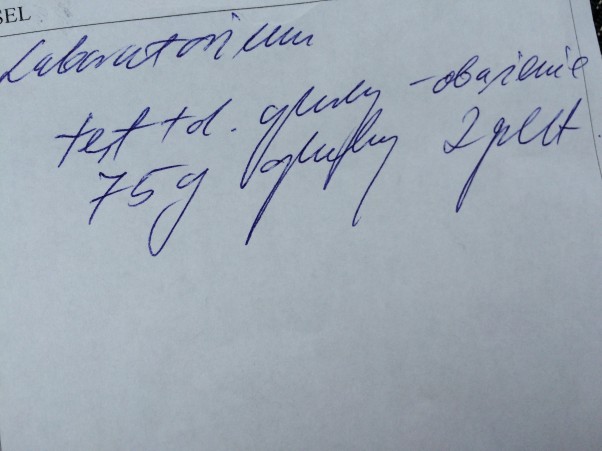 SEL
Laboratorium
test tol. glukozy - obciążenie
75 g glukozy 2 pkt